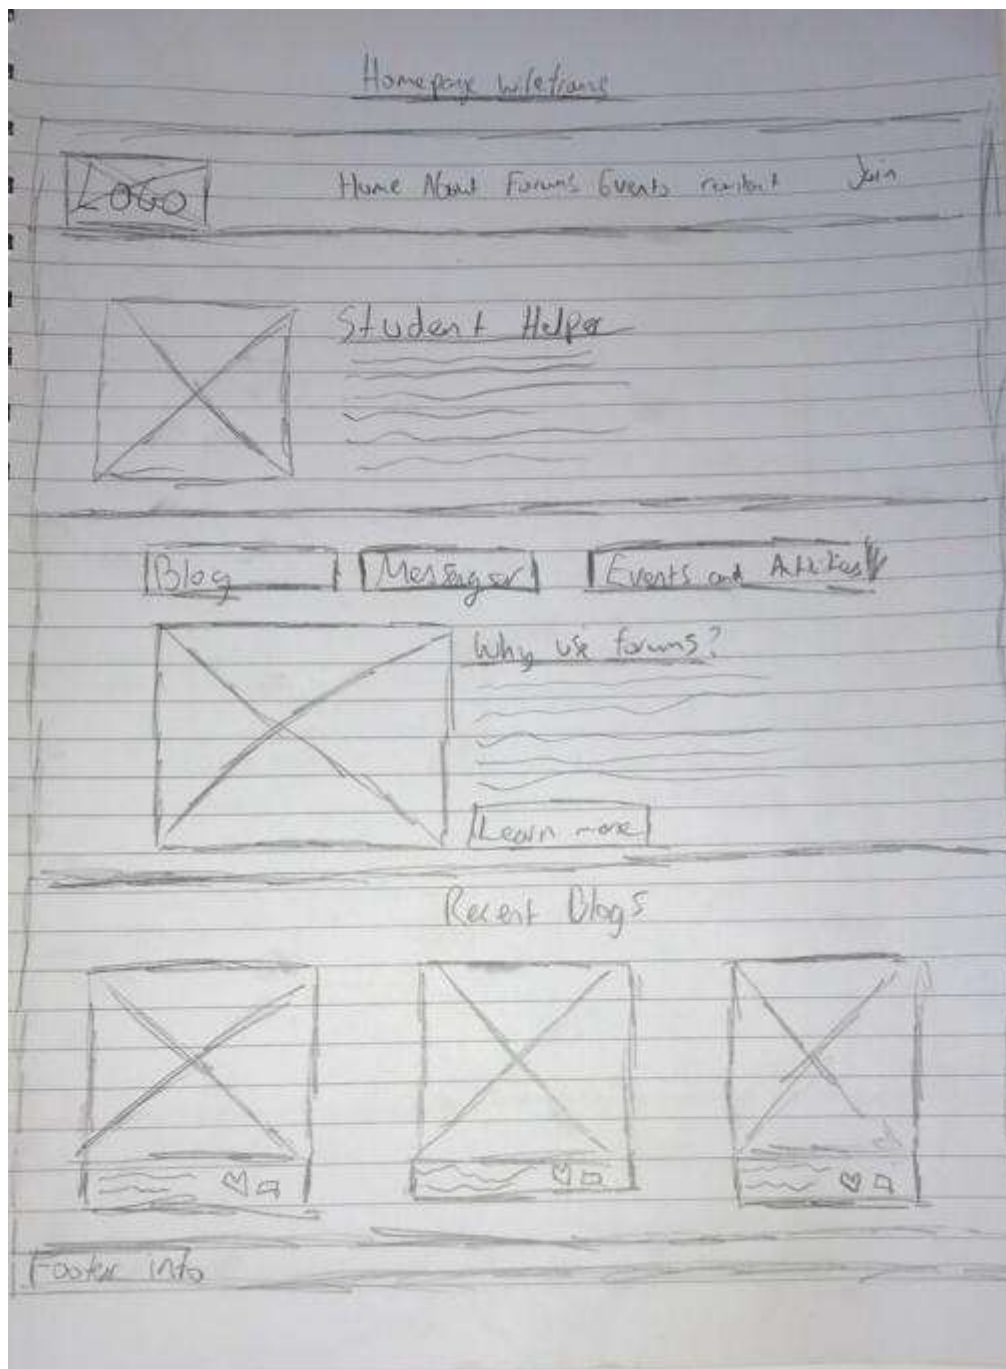 Homepage wireframe
LOGO
Home About Forums Events contact Join
Student Helper
Blog Messager Events and
Why use forums?
Learn more
Recent Blogs
Footer info